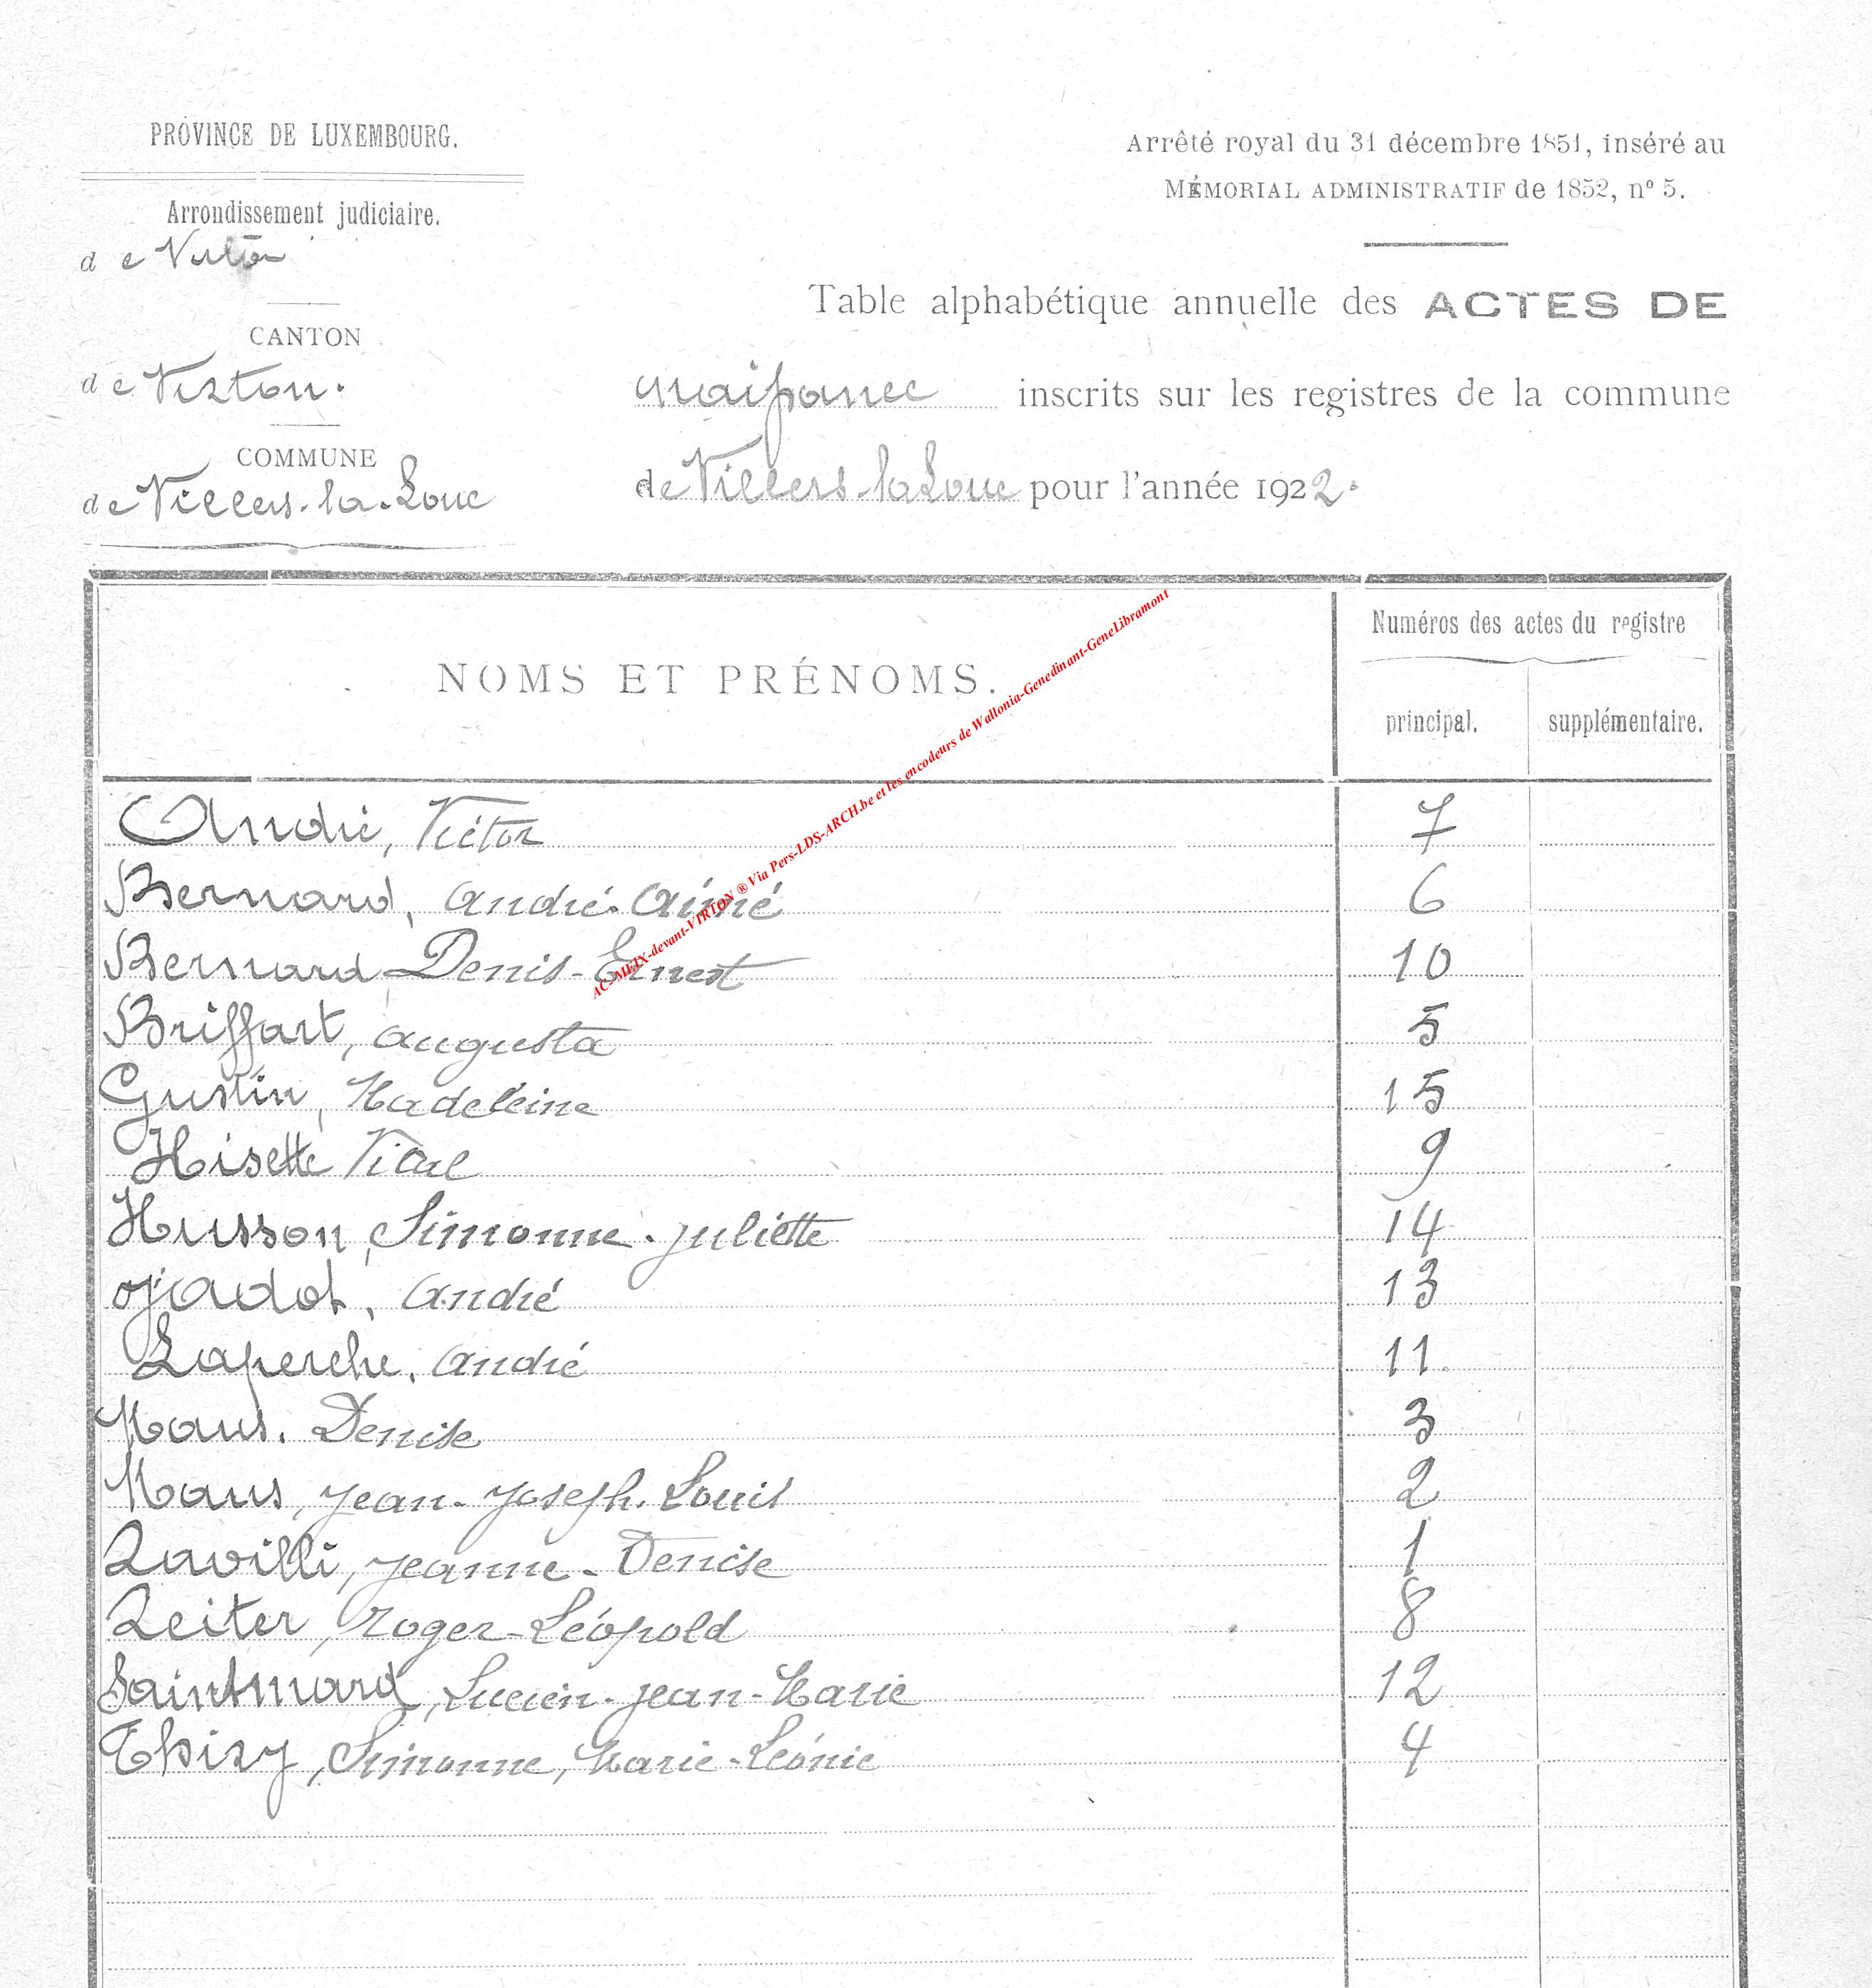 PROVINCE DE LUXEMBOURG.
Arrondissement judiciaire.
de Virton
CANTON
de Virton.
COMMUNE
de Villers-la-Loue
Arrêté royal du 31 décembre 1851, inséré au
MÉMORIAL ADMINISTRATIF de 1852, nº 5.
Table alphabétique annuelle des ACTES DE
naissance inscrits sur les registres de la commune
de Villers-la Loue pour l'année 1922.
NOMS ET PRÉNOMS.
Numéros des actes du registre
principal. supplémentaire.
AC-MEIX-devant-VIRTON ® Via Pers-LDS-ARCH.be et les encodeurs de Wallonia-Genedinant-GeneLibramont
André, Victor 7
Bernard, André-Aimé 6
Bernard Denis-Ernest 10
Briffart, Augusta 5
Gustin, Madeleine 15
Hisette Vital 9
Husson, Simonne-Juliette 14
Jadot, André 13
Laperche, André 11
Maus. Denise 3
Maus, Jean-Joseph-Louis 2
Ravilli, Jeanne-Denise 1
Reiter, Roger-Léopold 8
Saintmard, Lucien-Jean-Marie 12
Thiry, Simonne, Marie-Léonie 4